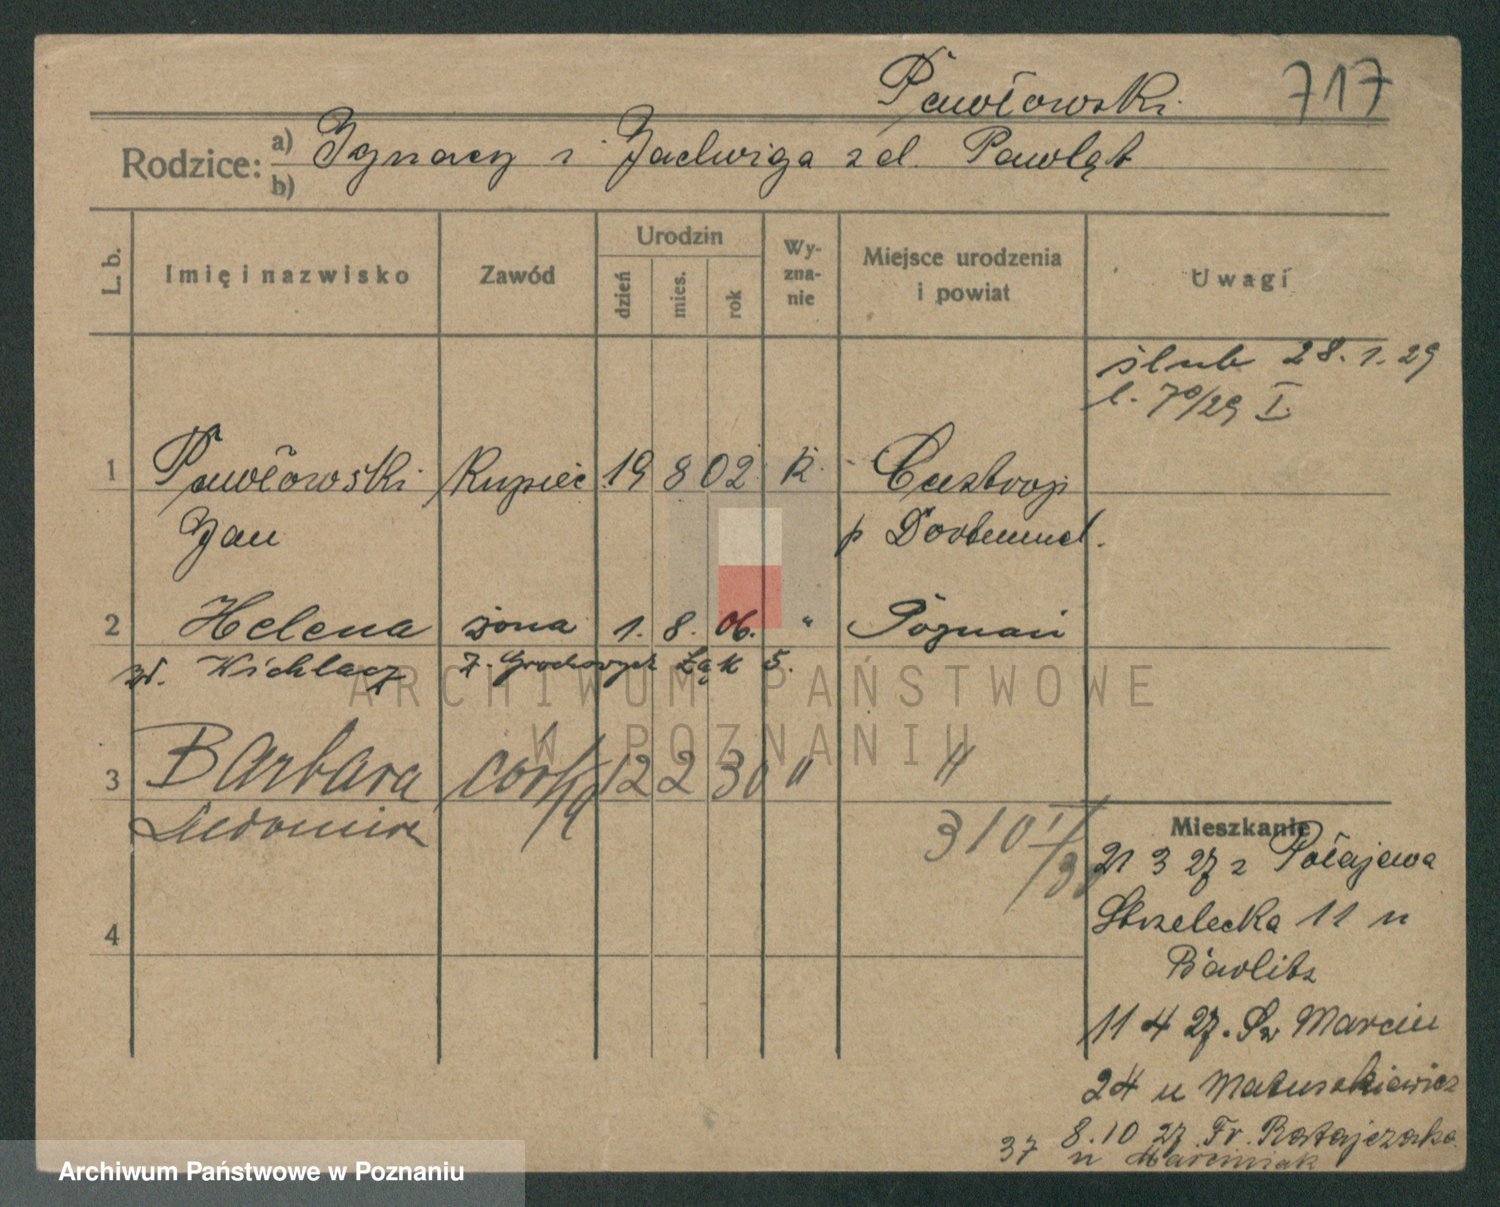 Pawłowski 717
Rodzice: a) Ignacy i Jadwiga z d. Pawląt
b)
L. b. Imię i nazwisko Zawód Urodzin dzień mies. rok Wyznanie Miejsce urodzenia i powiat Uwagi
ślub 28.1.29
l. 70/29 I.
1 Pawłowski Kupiec 19 8 02 K. Castrop
Jan p Dortmund.
2 Helena żona 1. 8. 06. " Poznań
zd. Michlacz z. Grochowych Łąk 5.
3 Barbara córka 12 2 30 " "
Ludomira 310 I/3
4
Mieszkanie
21 3 27 z Połajewa
Strzelecka 11 u
Pawlitz
11 4 27. Św Marcin
24 u Matuszkiewicz
8.10 27 Fr. Ratajczaka
37 u Marciniak
ARCHIWUM PAŃSTWOWE
W POZNANIU
Archiwum Państwowe w Poznaniu